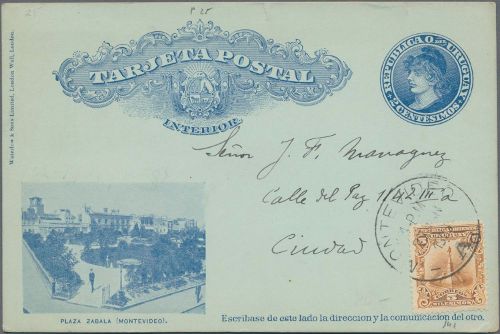 P 25
TARJETA POSTAL
INTERIOR
REPUBLICA O. DEL URUGUAY
2 CENTESIMOS
Waterlow & Sons Limited, London Wall, London.
Señor J. F.
Calle del Paz
Ciudad
MONTEVIDEO
5 MILESIMOS
PLAZA ZABALA (MONTEVIDEO).
Escribase de este lado la direccion y la comunicacion del otro.